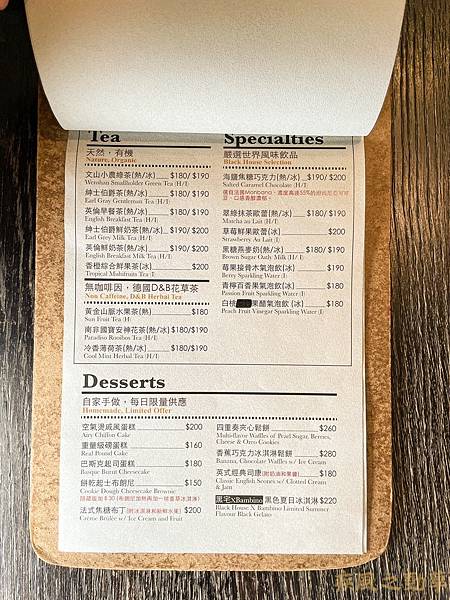 Tea
天然，有機
Nature, Organic
文山小農綠茶(熱/冰) $180/ $190
Wenshan Smallholder Green Tea (H/I)
紳士伯爵茶(熱/冰) $180/ $190
Earl Gray Gentleman Tea (H/I)
英倫早餐茶(熱/冰) $180/ $190
English Breakfast Tea (H/I)
紳士伯爵鮮奶茶(熱/冰) $190/$200
Earl Grey Milk Tea (H/I)
英倫鮮奶茶(熱/冰) $190/$200
English Breakfast Milk Tea (H/I)
香橙綜合鮮果茶(冰) $200
Tropical Multifruits Tea (I)
無咖啡因，德國D&B花草茶
Non Caffeine, D&B Herbal Tea
黃金山脈水果茶(熱) $180
Sun Fruit Tea (H)
南非國寶安神花草茶(熱/冰)$180/$190
Paradiso Rooibos Tea (H/I)
冷香薄荷茶(熱/冰) $180/$190
Cool Mint Herbal Tea (H/I)
Specialties
嚴選世界風味飲品
Black House Selection
海鹽焦糖巧克力(熱/冰) $190/ $200
Salted Caramel Chocolate (H/I)
翠綠抹茶歐蕾(熱/冰) $180/ $190
Matcha au Lait (H/I)
草莓鮮果歐蕾(冰) $200
Strawberry Au Lait (I)
黑糖燕麥奶(熱/冰) $180/$190
Brown Sugar Oaty Milk (H/I)
莓果接骨木氣泡飲(冰) $190
Berry Sparkling Water (I)
青檸百香果氣泡飲(冰) $180
Passion Fruit Sparkling Water (I)
白桃 果醋氣泡飲 (冰) $180
Peach Fruit Vinegar Sparkling Water (I)
Desserts
自家手做，每日限量供應
Homemade, Limited Offer
空氣燙戚風蛋糕 $200
Airy Chiffon Cake
重量級磅蛋糕 $160
Real Pound Cake
巴斯克起司蛋糕 $180
Basque Burnt Cheesecake
餅乾起士布朗尼 $150
Cookie Dough Cheesecake Brownie
法式焦糖布丁(附冰淇淋和新鮮水果) $200
Crème Brulée w/ Ice Cream and Fruit
四重奏夾心鬆餅 $260
Multi-flavor Waffles of Pearl Sugar, Berries,
Cheese & Oreo Cookies
香蕉巧克力冰淇淋鬆餅 $280
Banana, Chocolate Waffles w/ Ice Cream
英式經典司康(附奶油和果醬) $180
Classic English Scones w/ Clotted Cream
& Jam
黑宅XBambino 黑色夏日冰淇淋$220
Black House X Bambino Limited Summer
Flavour Black Gelato